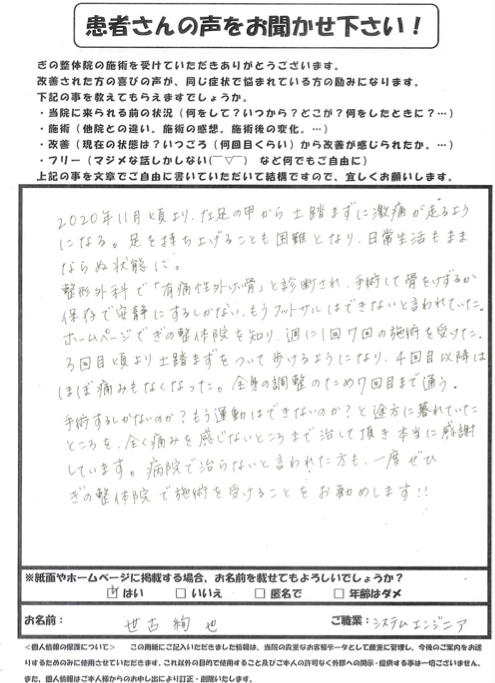 患者さんの声をお聞かせ下さい！
ぎの整体院の施術を受けていただきありがとうございます。
改善された方の喜びの声が、同じ症状で悩まれている方の励みになります。
下記の事を教えてもらえますでしょうか。
・当院に来られる前の状況（何をして？いつから？どこが？何をしたときに？…）
・施術（他院との違い。施術の感想。施術後の変化。…）
・改善（現在の状態は？いつごろ（何回目くらい）から改善が感じられたか。…）
・フリー（マジメな話しかしない(￣▽￣) など何でもご自由に）
上記の事を文章でご自由に書いていただいて結構ですので、宜しくお願いします。
2020年11月頃より、左足の甲から土踏まずに激痛が走るよう
になる。足を持ち上げることも困難となり、日常生活もまま
ならぬ状態に。
整形外科で「有痛性外脛骨」と診断され、手術して骨をけずるか
保存で安静にするしかない、もうフットサルはできないと言われていた。
ホームページでぎの整体院を知り、週に1回7回の施術を受けた。
3回目頃より土踏まずをついて歩けるようになり、4回目以降は
ほぼ痛みもなくなった。全身の調整のため7回目まで通う。
手術するしかないのか？もう運動はできないのか？と途方に暮れていた
ところを、全く痛みを感じないところまで治して頂き本当に感謝
しています。病院で治らないと言われた方も、一度ぜひ
ぎの整体院で施術を受けることをお勧めします!!
※紙面やホームページに掲載する場合、お名前を載せてもよろしいでしょうか？
☑ はい □ いいえ □ 匿名で □ 年齢はダメ
お名前： 世古 絢也 ご職業：システムエンジニア
<個人情報の保護について> この用紙にご記入いただきました情報は、当院の貴重なお客様データとして厳重に管理し、今後のご案内をお送
りするためのみに使用させていただきます。これ以外の目的で使用すること及びご本人の許可なく外部への開示・提供する事は一切ございません。
また、個人情報はご本人様からのお申し出により訂正・削除いたします。